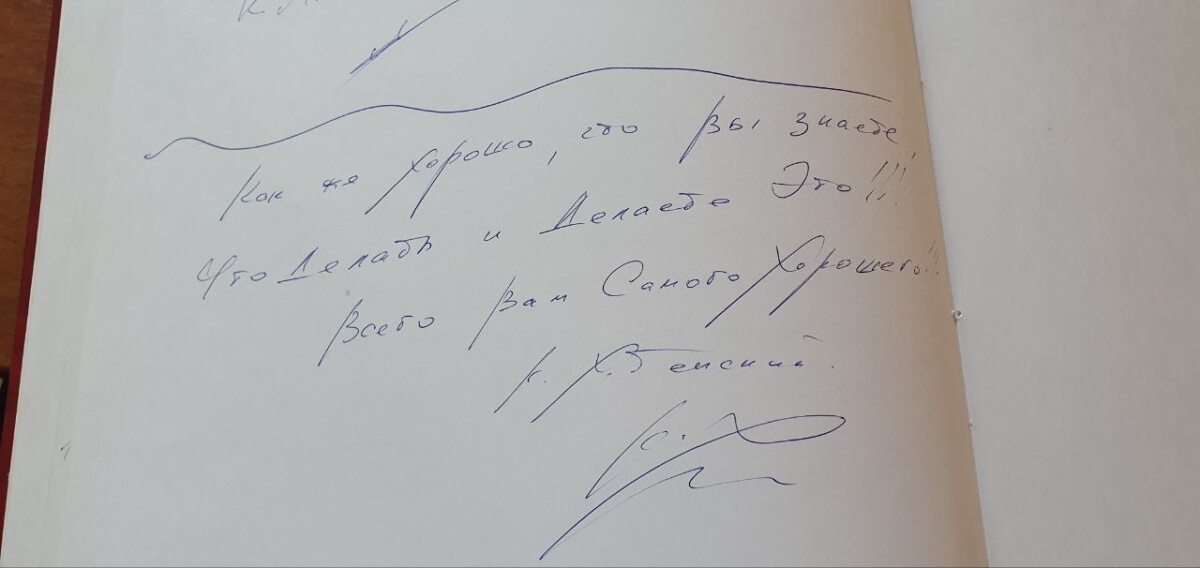 К.
Как же Хорошо, что Вы знаете,
Что Делать и Делаете Это!!!
Всего Вам Самого Хорошего!!!
К. Х.Тенский.